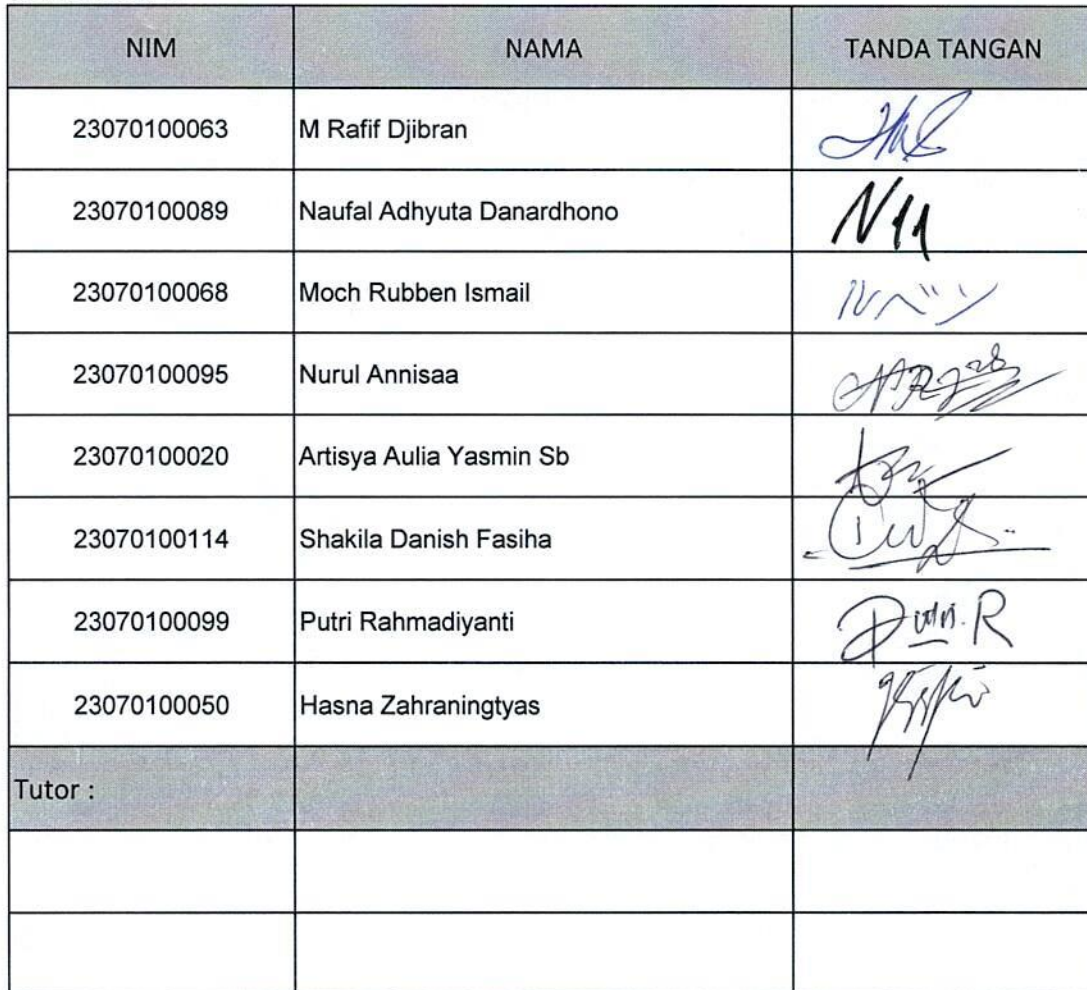 NIM NAMA TANDA TANGAN
23070100063 M Rafif Djibran
23070100089 Naufal Adhyuta Danardhono
23070100068 Moch Rubben Ismail
23070100095 Nurul Annisaa
23070100020 Artisya Aulia Yasmin Sb
23070100114 Shakila Danish Fasiha
23070100099 Putri Rahmadiyanti
23070100050 Hasna Zahraningtyas
Tutor :